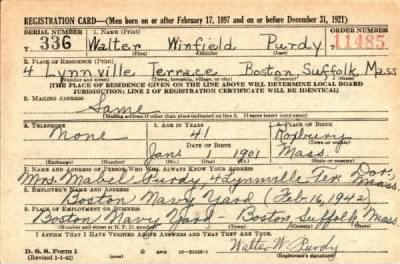 REGISTRATION CARD—(Men born on or after February 17, 1897 and on or before December 31, 1921)
SERIAL NUMBER 1. NAME (Print) ORDER NUMBER
T 336 Walter Winfield Purdy 11485
(First) (Middle) (Last)
2. PLACE OF RESIDENCE (Print)
4 Lynnville Terrace Boston Suffolk Mass
(Number and street) (Town, township, village, or city) (County) (State)
[THE PLACE OF RESIDENCE GIVEN ON THE LINE ABOVE WILL DETERMINE LOCAL BOARD
JURISDICTION; LINE 2 OF REGISTRATION CERTIFICATE WILL BE IDENTICAL]
3. MAILING ADDRESS
Same
[Mailing address if other than place indicated on line 2. If same insert word same]
4. TELEPHONE 5. AGE IN YEARS 6. PLACE OF BIRTH
None 41 Roxbury
DATE OF BIRTH (Town or county)
Jan. 1901 Mass.
(Exchange) (Number) (Mo.) (Day) (Yr.) (State or country)
7. NAME AND ADDRESS OF PERSON WHO WILL ALWAYS KNOW YOUR ADDRESS
Mrs. Mabel Purdy, 4 Lynnville Ter. Dor. Mass.
8. EMPLOYER'S NAME AND ADDRESS
Boston Navy Yard (Feb. 16, 1942)
9. PLACE OF EMPLOYMENT OR BUSINESS
Boston Navy Yard - Boston, Suffolk, Mass
(Number and street or R. F. D. number) (Town) (County) (State)
I AFFIRM THAT I HAVE VERIFIED ABOVE ANSWERS AND THAT THEY ARE TRUE.
D. S. S. Form 1
(Revised 1-1-42) (over) GPO Walter W. Purdy
(Registrant's signature)